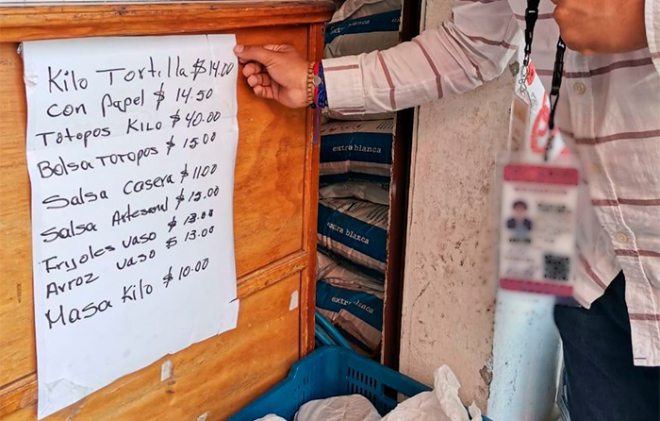 Kilo Tortilla $14.00
con Papel $ 14.50
Totopos Kilo $40.00
Bolsa Totopos $ 15.00
Salsa casera $ 11.00
Salsa Artesanal $ 15.00
Frijoles vaso $ 13.00
Arroz vaso $ 13.00
Masa Kilo $10.00
extra blanca
extra blanca
extra